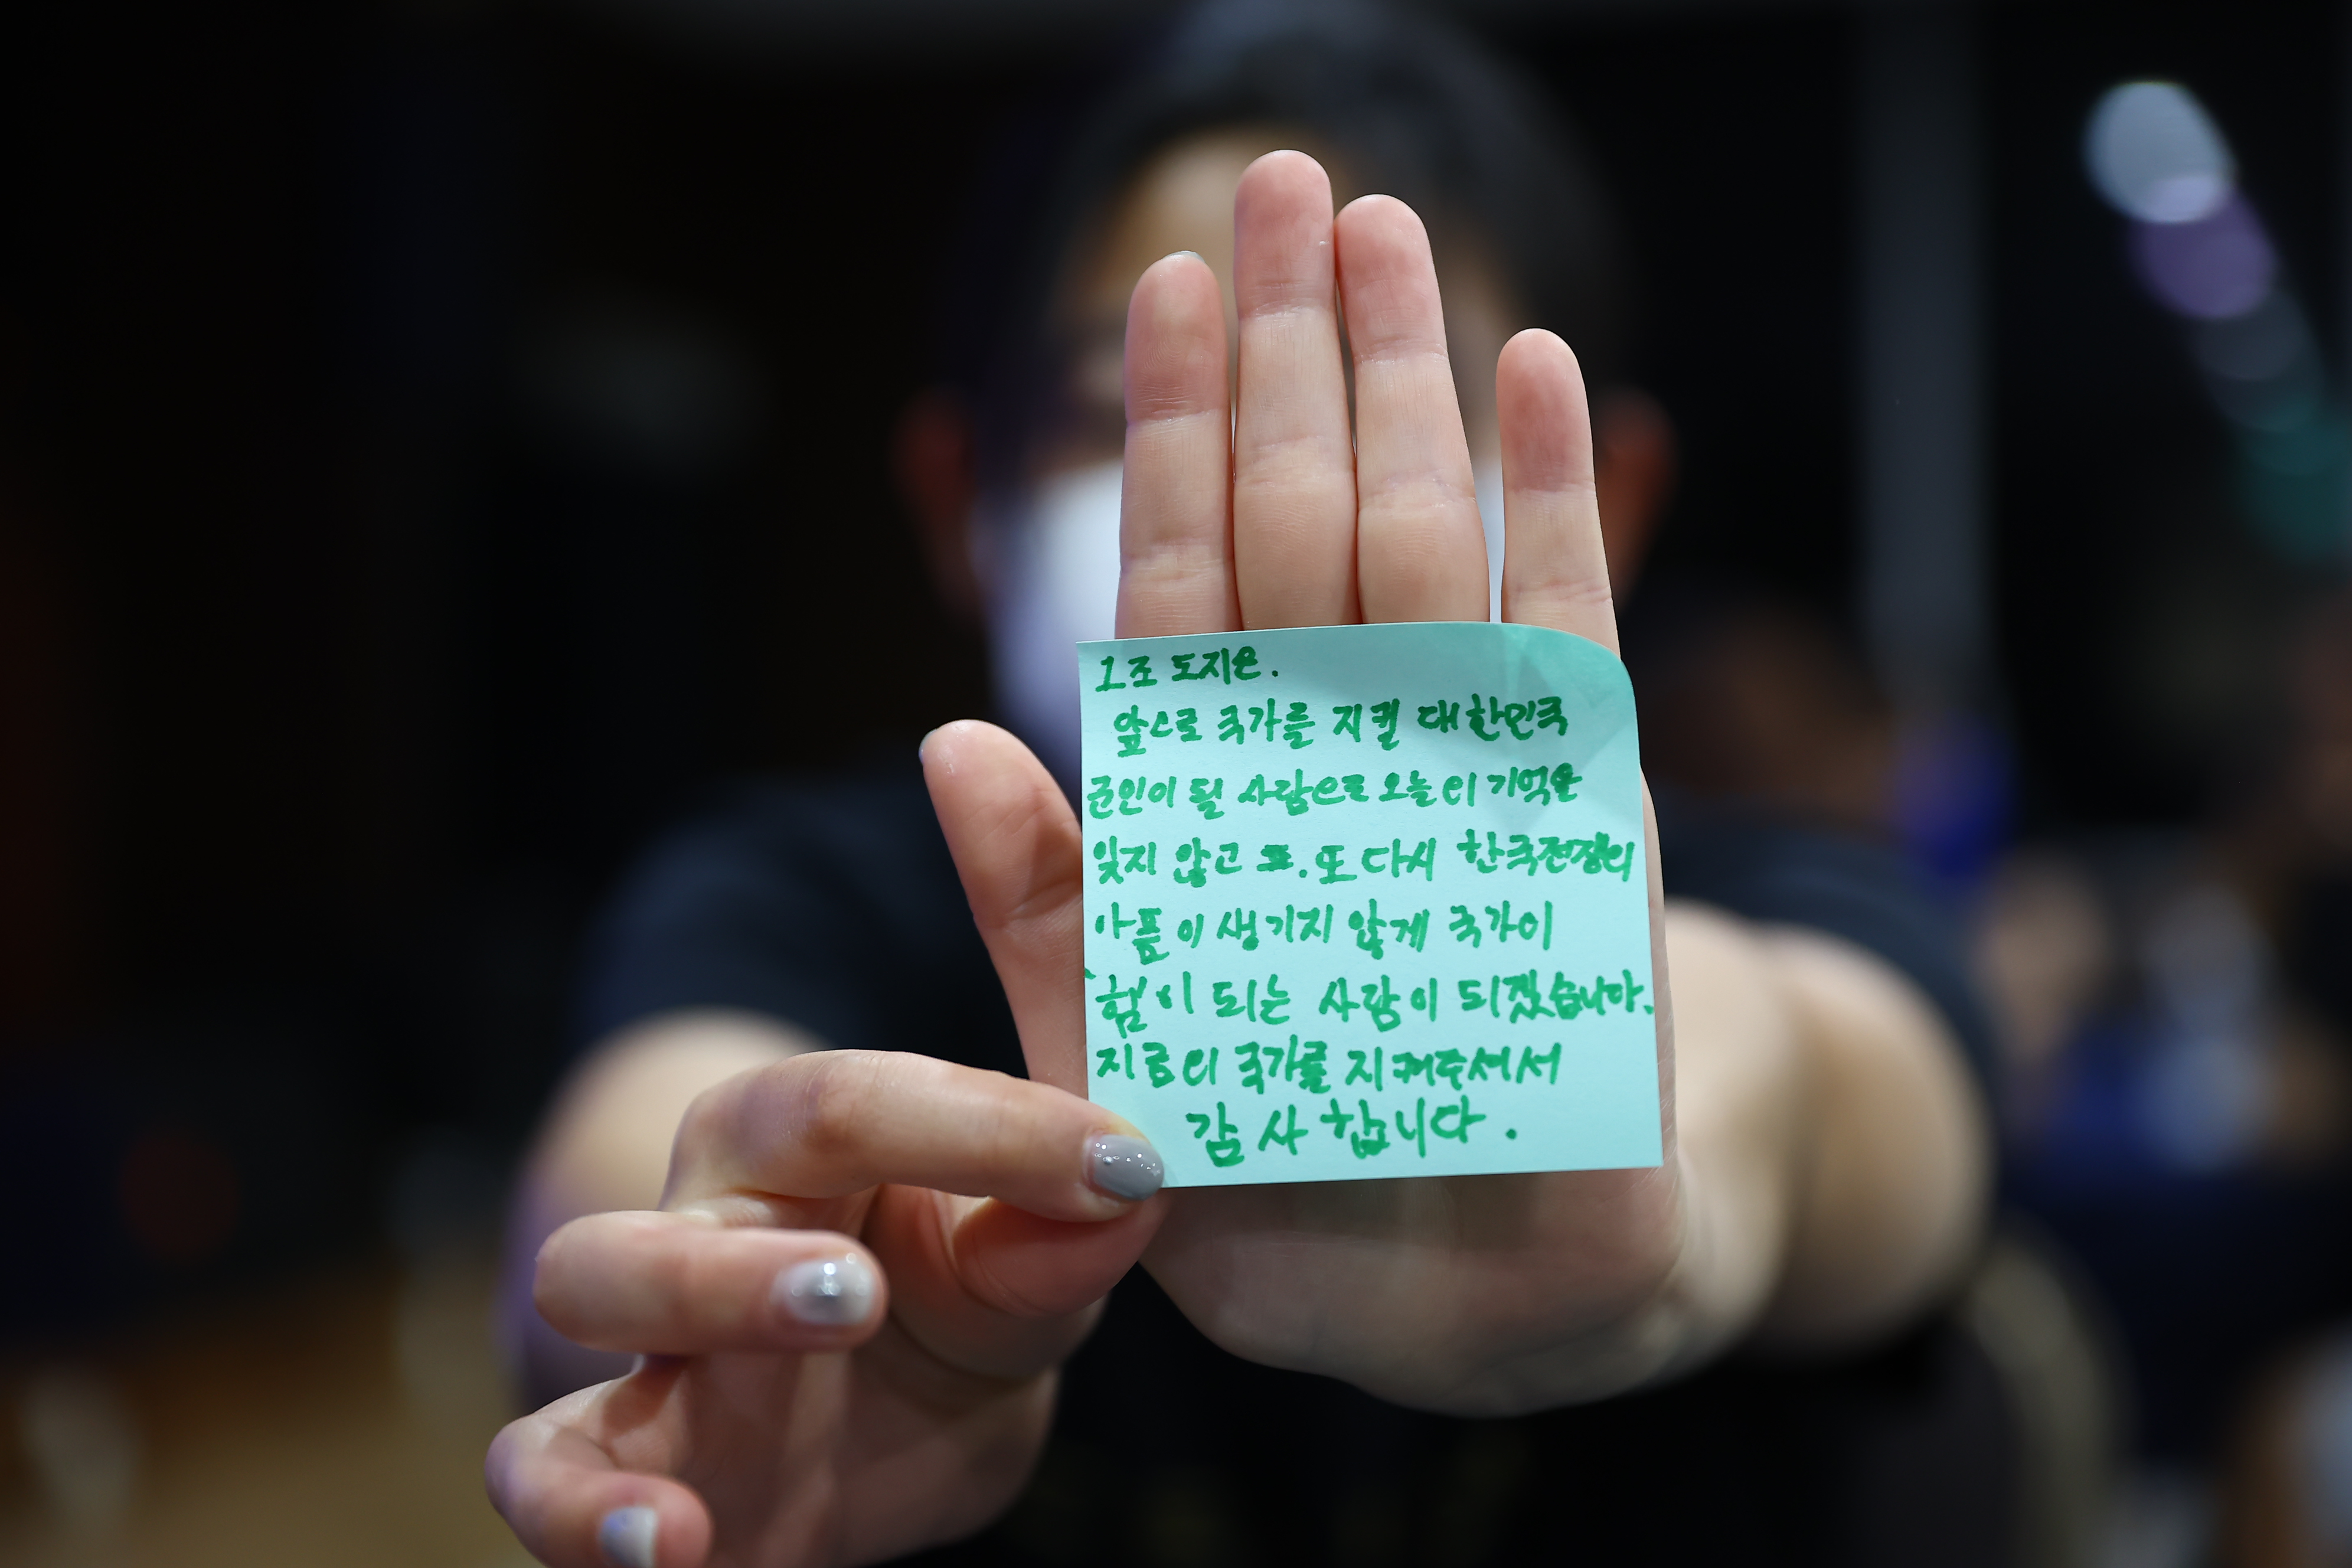 1조 도지은.
앞스로 국가를 지킬 대한민국
군인이 될 사람으로 오늘의 기억을
잊지 않고 또 다시 한국전쟁의
아픔이 생기지 않게 국가이
힘이 되는 사람이 되겠습니다.
지금의 국가를 지켜주셔서
감사합니다.